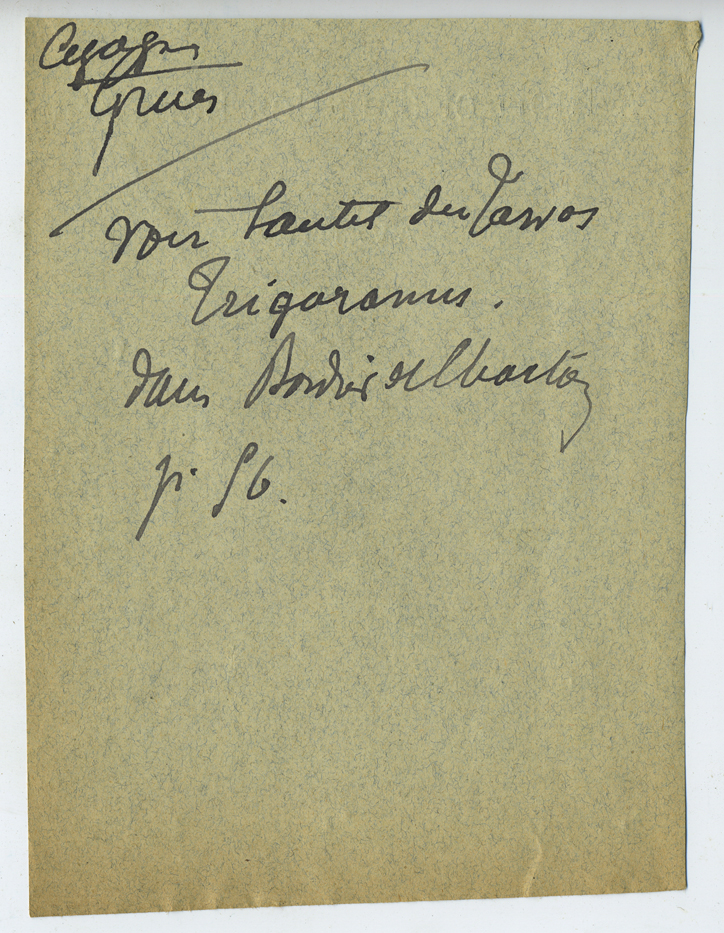 Cigognes
Grues
voir l'autel du Tarvos
Trigaranus.
dans Bordier et Charton
p. 56.